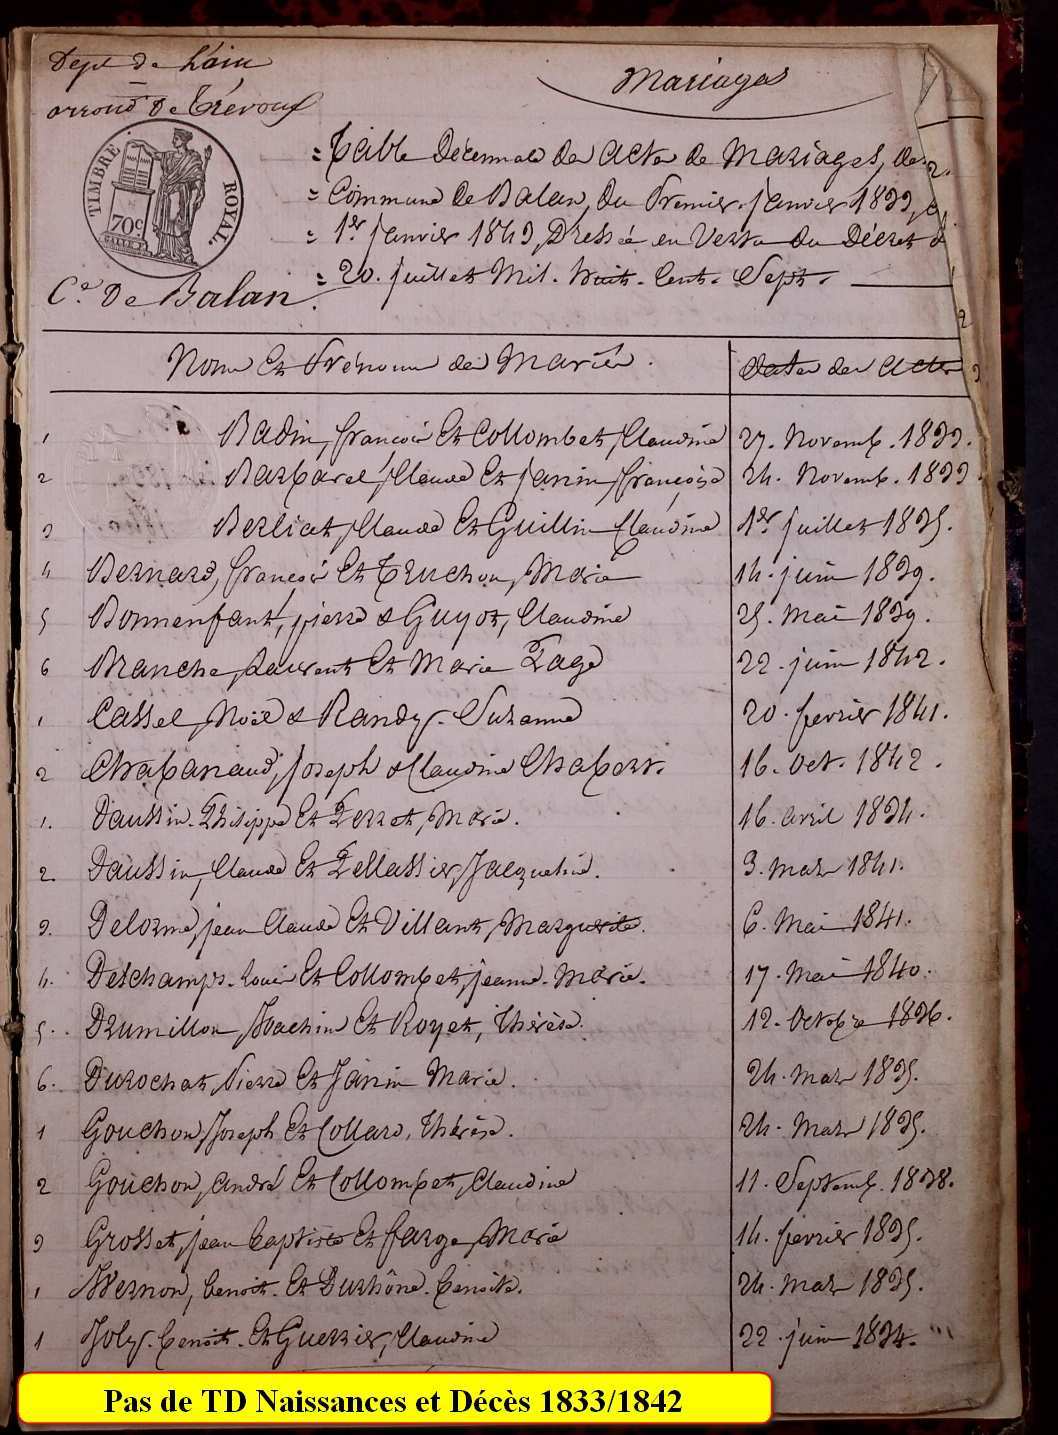 Dept de L'ain
arrond de Trévoux
Mariages
TIMBRE ROYAL.
70c
= Table Décennale des Actes de Mariages, des
= Commune de Balan, du Premier janvier 1833,
= 1er janvier 1843, Dressée en Vertu du Décret
= 20. juillet Mil. huit. Cent. Sept.
Ce. De Balan.
Noms Et Prénoms des Mariés.
dates des Actes
1 Badin, françois Et Collombet, Claudine 27. Novemb. 1833.
2 Barbarel, Claude Et Janin, françoise 24. Novemb. 1833
3 Berliat, Claude Et Guillin Claudine 1er juillet 1835.
4 Bernard, françois Et Truchon, Marie 14. juin 1839.
5 Bonnenfant, pierre & Guyot, Claudine 25. Mai 1839.
6 Branche, Laurent Et Marie Page 22. juin 1842.
1 Cassel, Noël & Randy. Suzanne 20. fevrier 1841.
2 Chabanaud, Joseph & Claudine Chabert. 16. Oct. 1842.
1. Daussin. Philippe Et Perret, Marie. 16. avril 1834.
2. Daussin, Claude Et Pellassier, Jacqueline. 3. Mars 1841.
3. Delorme, jean Claude Et Villant, Marguerite. 6. Mai 1841.
4. Deschamps. Louis Et Collombet, jeanne. Marie. 17. Mai 1840.
5. Drumillon, Joachim Et Royet, Thérèse. 12. Octobre 1836.
6. Durochat, Pierre Et Janin Marie. 24. Mars 1835.
1 Gouchon, Joseph Et Collard, Thérèse. 24. Mars 1835.
2 Gouchon, André Et Collombet, Claudine 11. Septemb. 1838.
3 Grosset, jean baptiste Et farge, Marie 14. février 1835.
1 benoit. Et benoite. 24. Mars 1835.
1 Joly. benoit. Et Guerrier, Claudine 22. juin 1834.
Pas de TD Naissances et Décès 1833/1842